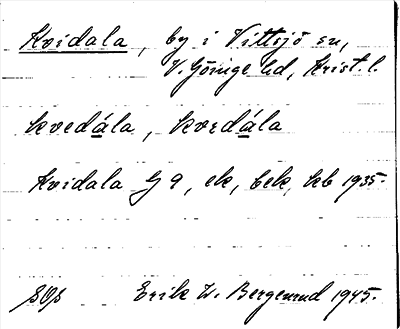 Kvidala, by i Vittsjö sn,
V. Göinge hd, Krist. l.
kvedála, kvedála
Kvidala G 9, ek, bek, kb 1935.
SOs Erik W. Bergenrud 1945.